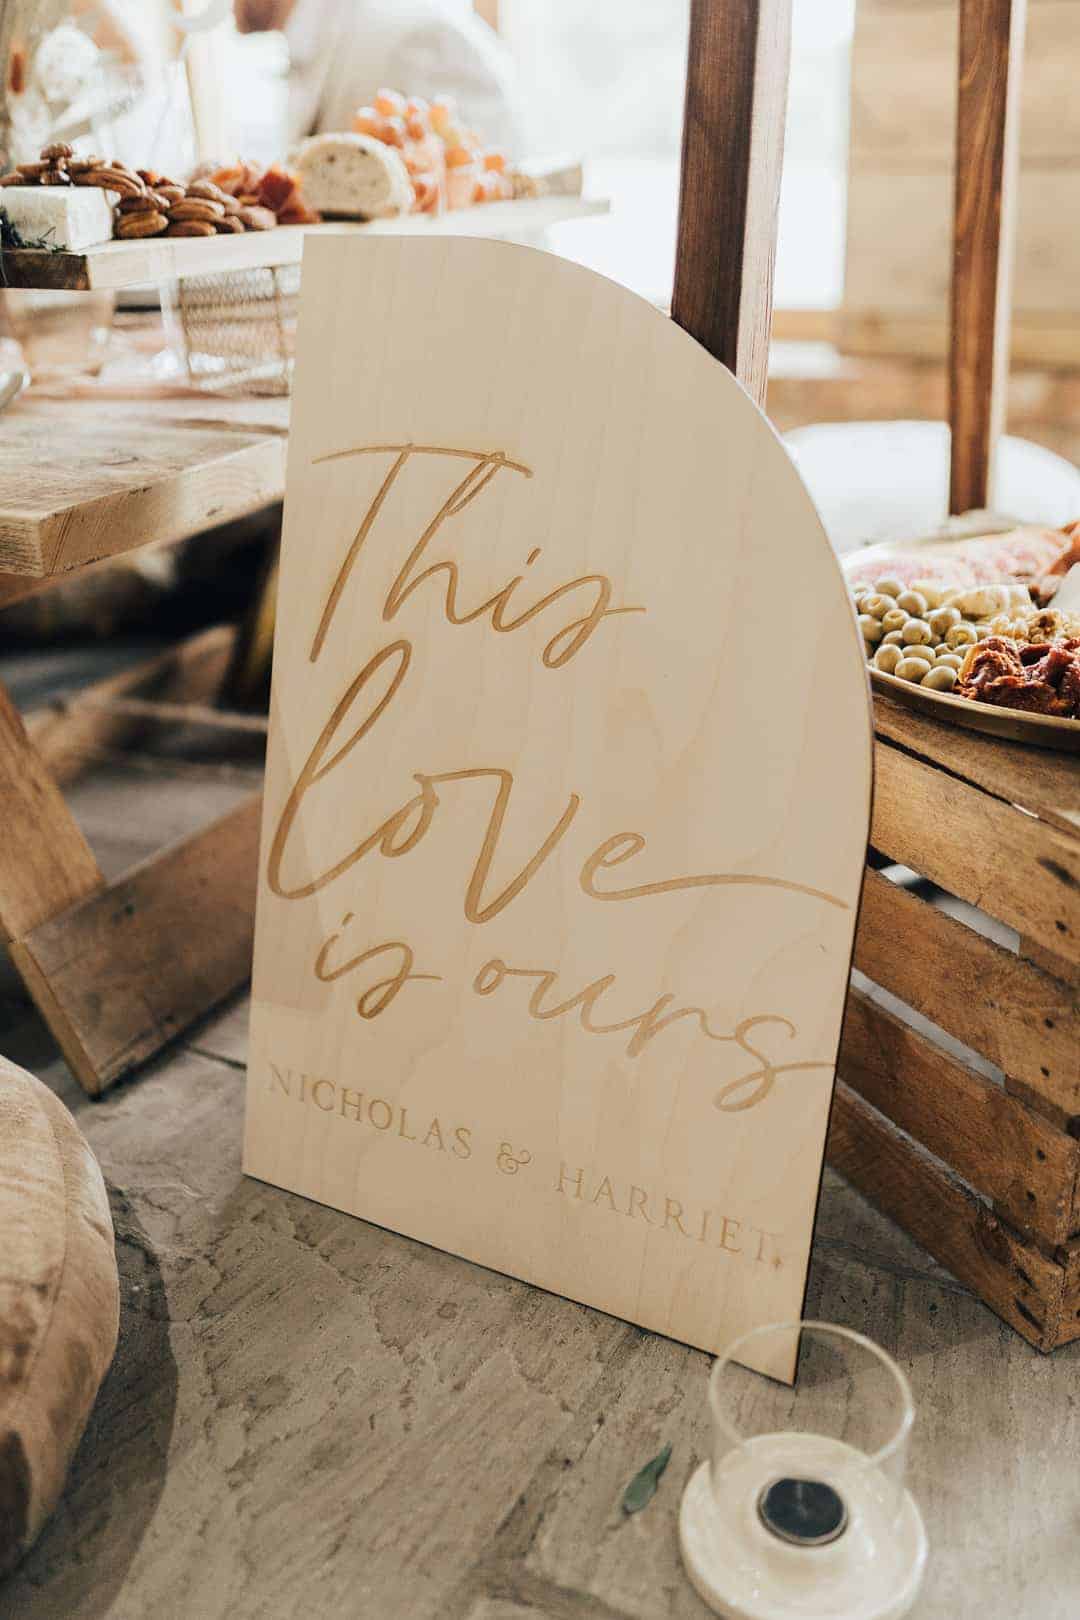 This
love
is ours
NICHOLAS & HARRIET